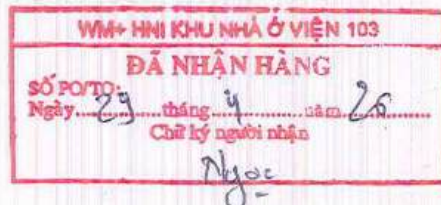 WM+ HNI KHU NHÀ Ở VIỆN 103
ĐÃ NHẬN HÀNG
SỐ PO/TO:
Ngày 29 tháng 4 năm 26
Chữ ký người nhận
Ngọc